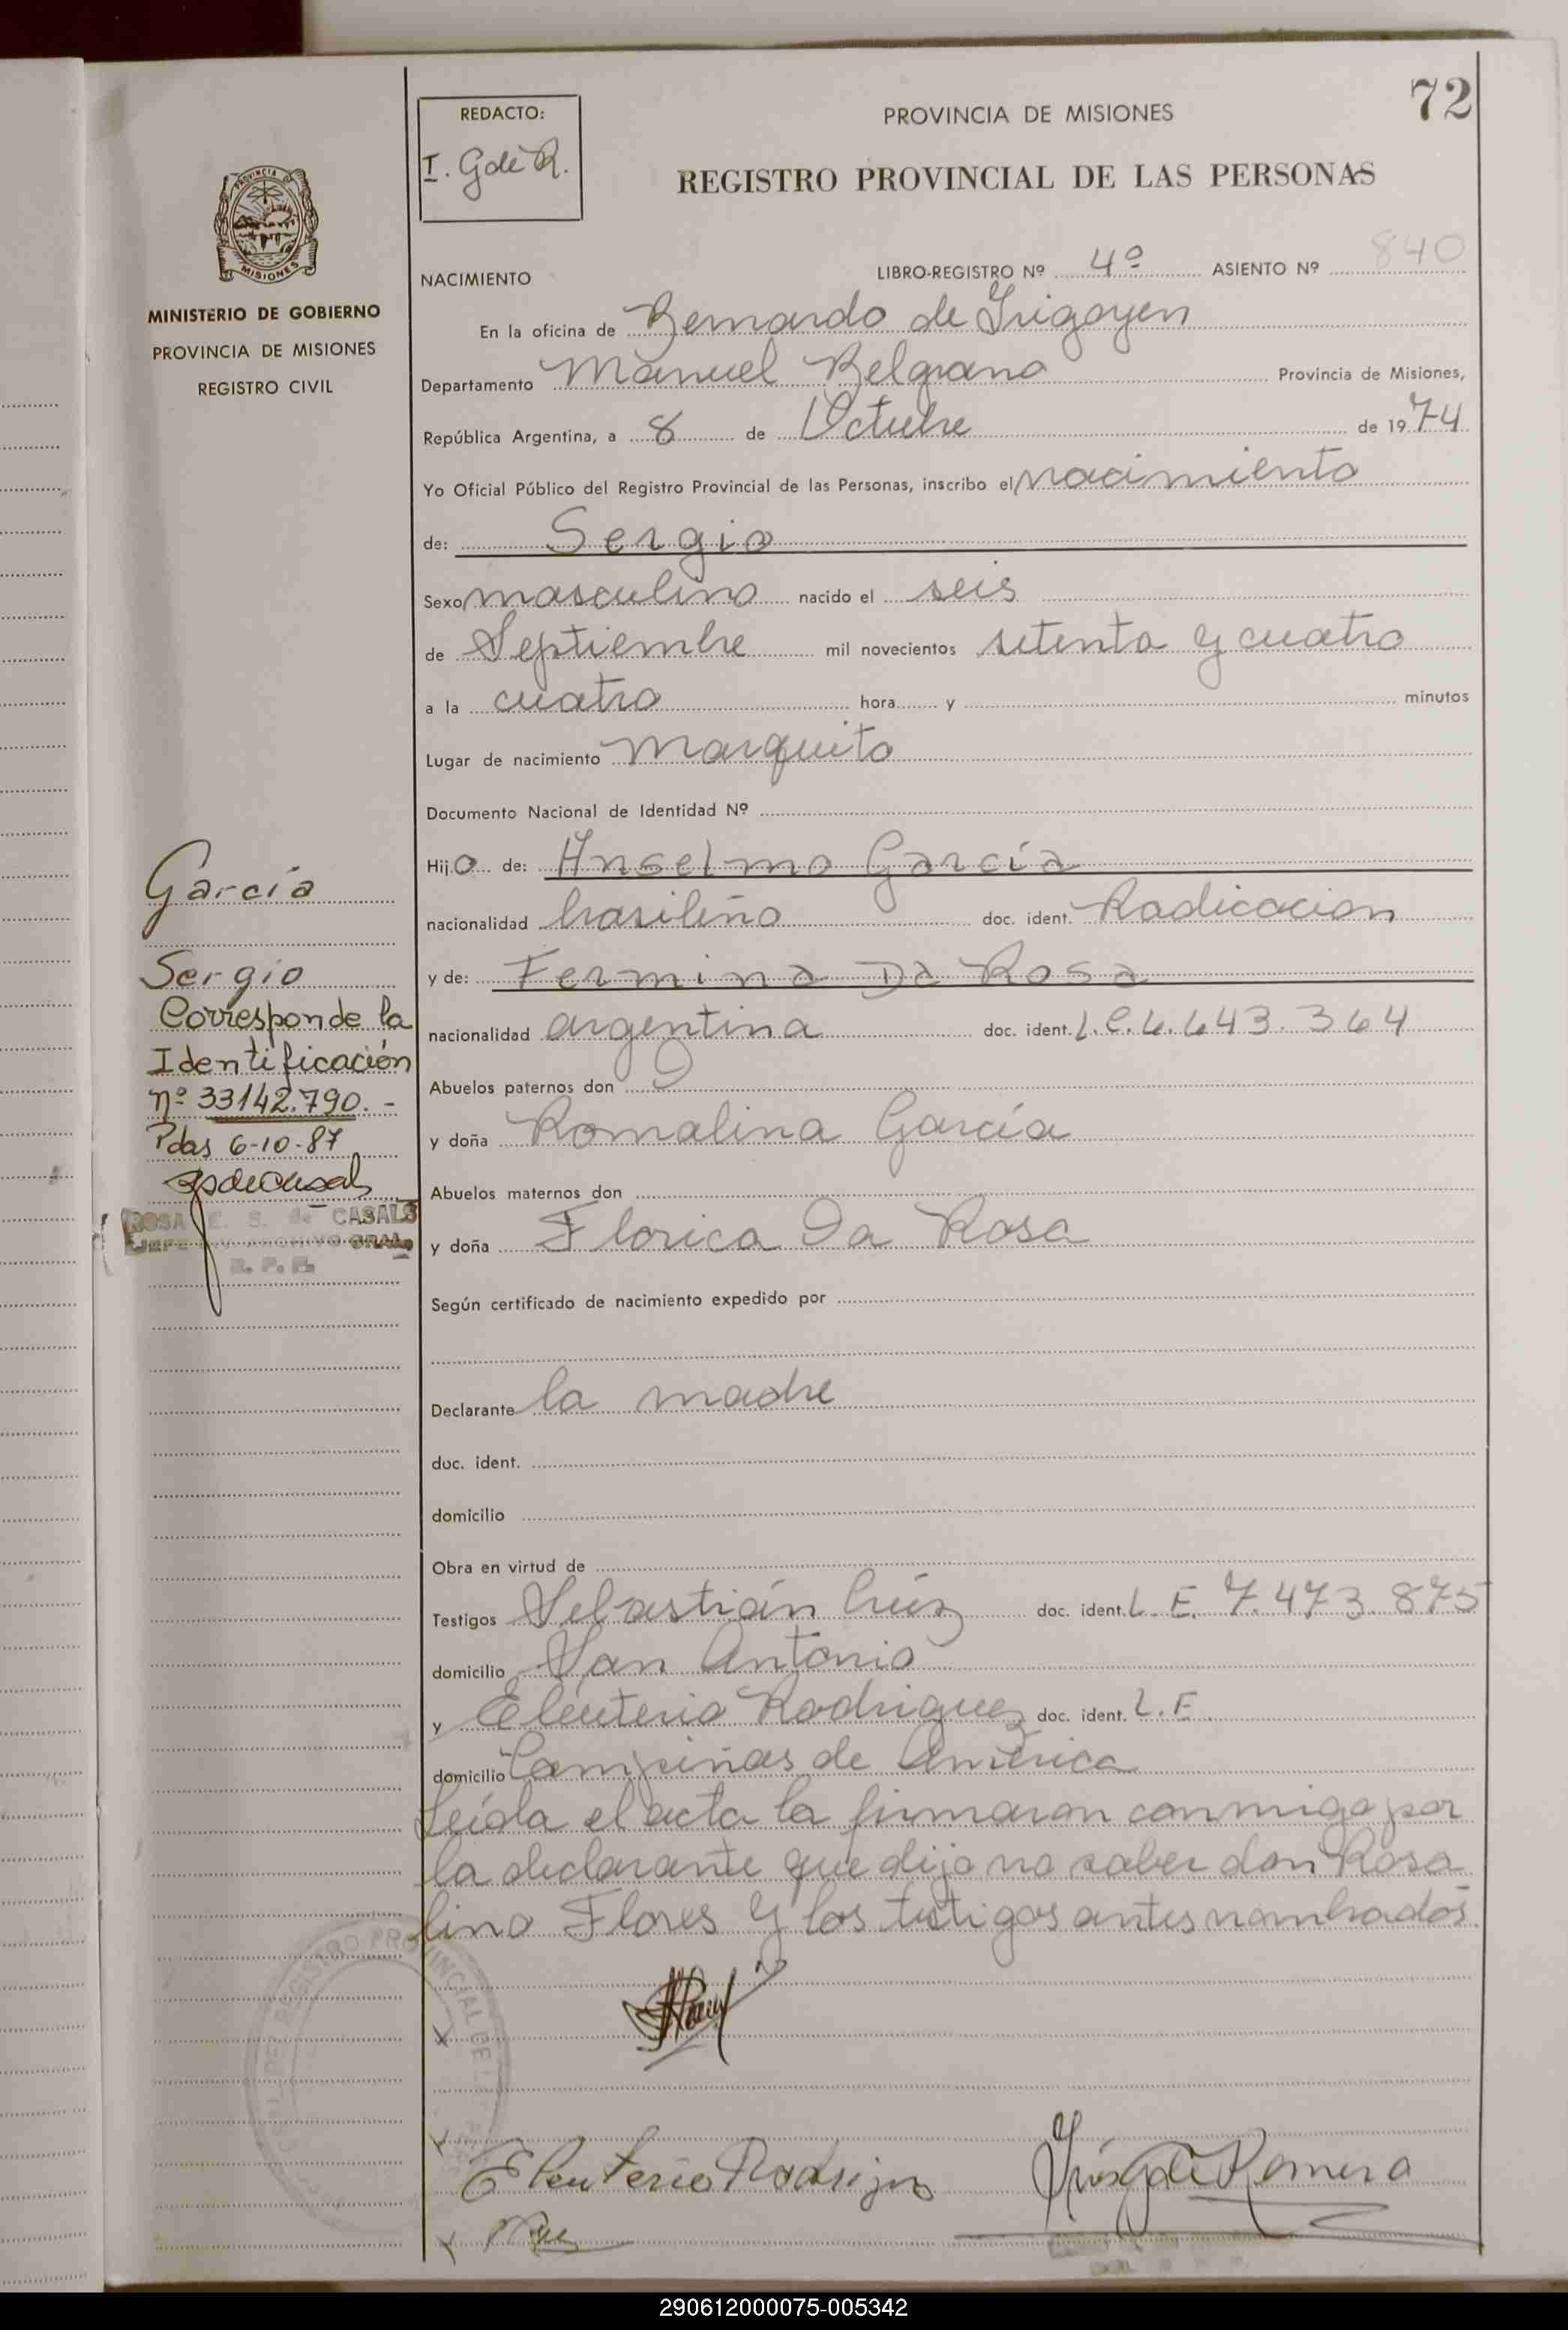 72
REDACTO:
I. G de R.
PROVINCIA DE MISIONES
REGISTRO PROVINCIAL DE LAS PERSONAS
PROVINCIA DE
MISIONES
MINISTERIO DE GOBIERNO
PROVINCIA DE MISIONES
REGISTRO CIVIL
NACIMIENTO LIBRO-REGISTRO Nº 4º ASIENTO Nº 840
En la oficina de Bernardo de Irigoyen
Departamento Manuel Belgrano Provincia de Misiones,
República Argentina, a 8 de Octubre de 1974
Yo Oficial Público del Registro Provincial de las Personas, inscribo el nacimiento
de: Sergio
Sexo masculino nacido el seis
de Septiembre mil novecientos setenta y cuatro
a la cuatro hora y minutos
Lugar de nacimiento Marquito
Documento Nacional de Identidad Nº
Hijo de: Anselmo García
nacionalidad brasileño doc. ident. Radicacion
y de: Fermina Da Rosa
nacionalidad argentina doc. ident. L.C. 6.643.364
Abuelos paternos don
y doña Romalina García
Abuelos maternos don
y doña Florica Da Rosa
Según certificado de nacimiento expedido por
Declarante la madre
doc. ident.
domicilio
Obra en virtud de
Testigos Sebastián doc. ident. L.E. 7.473.875
domicilio San Antonio
y Eleuterio Rodriguez doc. ident. L.E.
domicilio Campiñas de América
Leída el acta la firmaron conmigo por
la declarante que dijo no saber don Rosa
lino Flores y los testigos antes nombrados
García
Sergio
Corresponde la
Identificación
Nº 33142.790.-
Pdas 6-10-87
ROSA E. S. de CASALS
JEFE DIV. ARCHIVO GRAL.
R. P. P.
REGISTRO PROVINCIAL DE
Eleuterio Rodrigues
G de Romero
290612000075-005342